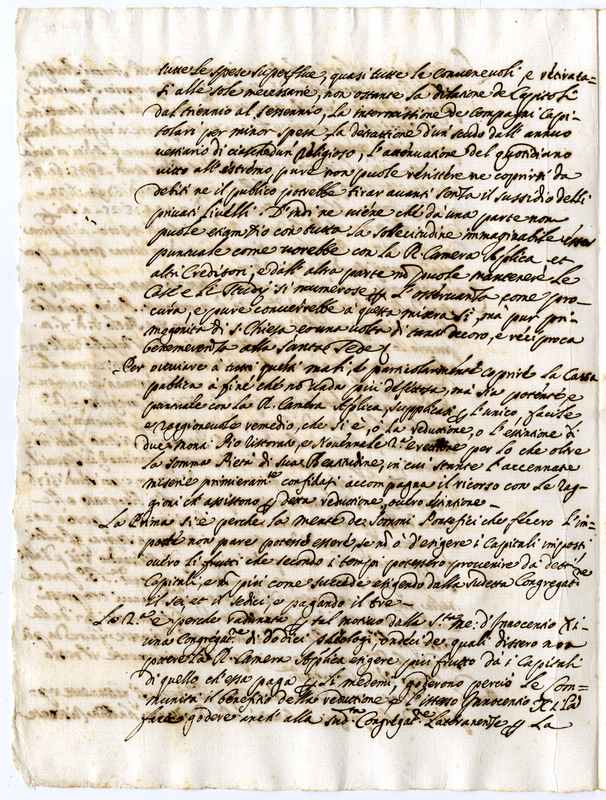 tutte le spese superflue, quasi tutte le convenevoli, e ritirata-
si alle sole necessarie, non ostante la dilazione de Capitoli
dal triennio al sessennio, la intermissione de compagni Capi-
tolari per minor spesa, la detrattione d'un scudo dall'annuo
vestiario di ciaschedun religioso, l'attenuatione del quotidiano
vitto all'estremo, pure non puole resistere ne coprirsi da
debiti ne il publico potrebbe tirar avanti senza il sussidio delli
privati livelli. Quindi ne viene che da una parte non
puole esser con tutta la sollecitudine immaginabile
puntuale come vorebbe con la R. Camera Aplica et
altri Creditori, e dall'altra parte no puole mantenere le
Case e li Studij si numerose p l'osservanza come pro-
cura, e pure converrebbe a questa misera si, ma pur pri-
mogenita di S. Chiesa et una volta di decoro, e reciproca
benemerenza alla Santa Sede
Per ovviare a tutti questi mali, et particolarmente coprire la Cassa
publica a fine che no vada più difettosa, ma sia potente e
puntuale con la R. Camera Aplica, supplicasi p l'unico, facile
e raggionevole remedio, che si è, o la reduttione, o l'estintione di
due Monti Rio Ristorato, e Novennale 2a erettione per lo che oltre
la somma Pietà di sua Beatitudine, in cui stante l'accennate
miserie primieramte confidasi accompagna il ricorso con le rag-
gioni ch'assistono p detta reduttione, overo estintione -
La Prima si è perche la mente de Sommi Pontefici che fecero l'im-
poste non pare potersi essere se no ò d'erigere i Capitali imposti
overo li frutti che secondo i tempi potessero provenire da detti
Capitali, e no più come succede esigendo dalla sudetta Congregatne
il sei, et il sedici, e pagando il tre -
La 2a è perche radunata p tal motivo dalla S.ta me: d'Innocenzo XI
una Congregatne di dodici Theologi, undeci de quali dissero non
potere la R. Camera Aplica esigere più frutto da i Capitali
di quello ch'essa paga p li medemi, goderono perciò le Com-
munità il benefitio della reduttione e l'istesso Innocenzo XI
fece godere anch'alla sudta Congregatne Lateranense p La